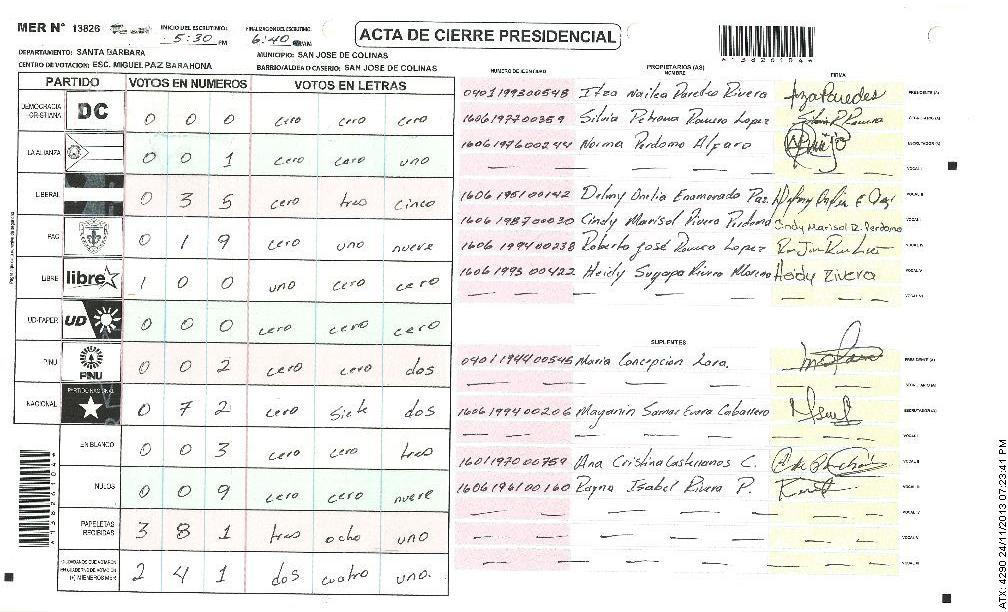 MER Nº 13826
INICIO DEL ESCRUTINIO:
5:30 PM
FINALIZACION DEL ESCRUTINIO:
6:40
ACTA DE CIERRE PRESIDENCIAL
A13826104
DEPARTAMENTO: SANTA BARBARA
MUNICIPIO: SAN JOSE DE COLINAS
CENTRO DE VOTACION: ESC. MIGUEL PAZ BARAHONA
BARRIO/ALDEA O CASERIO: SAN JOSE DE COLINAS
PARTIDO VOTOS EN NUMEROS VOTOS EN LETRAS
DEMOCRACIA CRISTIANA DC 0 0 0 cero cero cero
LA ALIANZA 0 0 1 cero cero uno
LIBERAL 0 3 5 cero tres cinco
0 1 9 cero uno nueve
LIBRE libre 1 0 0 uno cero cero
UD-FAPER UD 0 0 0 cero cero cero
PINU PINU 0 0 2 cero cero dos
NACIONAL PARTIDO NACIONAL 0 7 2 cero siete dos
EN BLANCO 0 0 3 cero cero tres
NULOS 0 0 9 cero cero nueve
PAPELETAS RECIBIDAS 3 8 1 tres ocho uno
CIUDADANOS QUE VOTARON EN CUADERNO DE VOTACION (+) MIEMBROS MER 2 4 1 dos cuatro uno.
NUMERO DE IDENTIDAD
PROPIETARIOS (AS)
NOMBRE
FIRMA
0401199300548 Itza Nailea Paredes Rivera Itza Paredes PRESIDENTE (A)
1606197700359 Silvia Petrona Romero Lopez Silvia P. Romero SECRETARIO (A)
1606197600244 Norma Perdomo Alfaro ESCRUTADOR (A)
— — — — — VOCAL I
1606195100142 Delmy Orelia Enamorado Paz. VOCAL II
1606198700030 Cindy Marisol Rivera Perdomo Cindy Marisol R. Perdomo
1606199400238 Roberto José Romero Lopez VOCAL IV
1606199300422 Heidy Suyapa Rivera Moreno Heidy Rivera VOCAL V
— — — — — VOCAL VI
SUPLENTES
0401194400545 Maria Concepcion Lara. PRESIDENTE (A)
— — — — — SECRETARIO (A)
1606199400206 ESCRUTADOR (A)
— — — — — VOCAL I
1601197000759 Ana Cristina Castellanos C. VOCAL II
1606196100160 Reyna Isabel Rivera P.
— — — — — VOCAL IV
— — — — — VOCAL V
— — — — —
A13826104
ATX: 4290 24/11/2013 07:23:41 PM